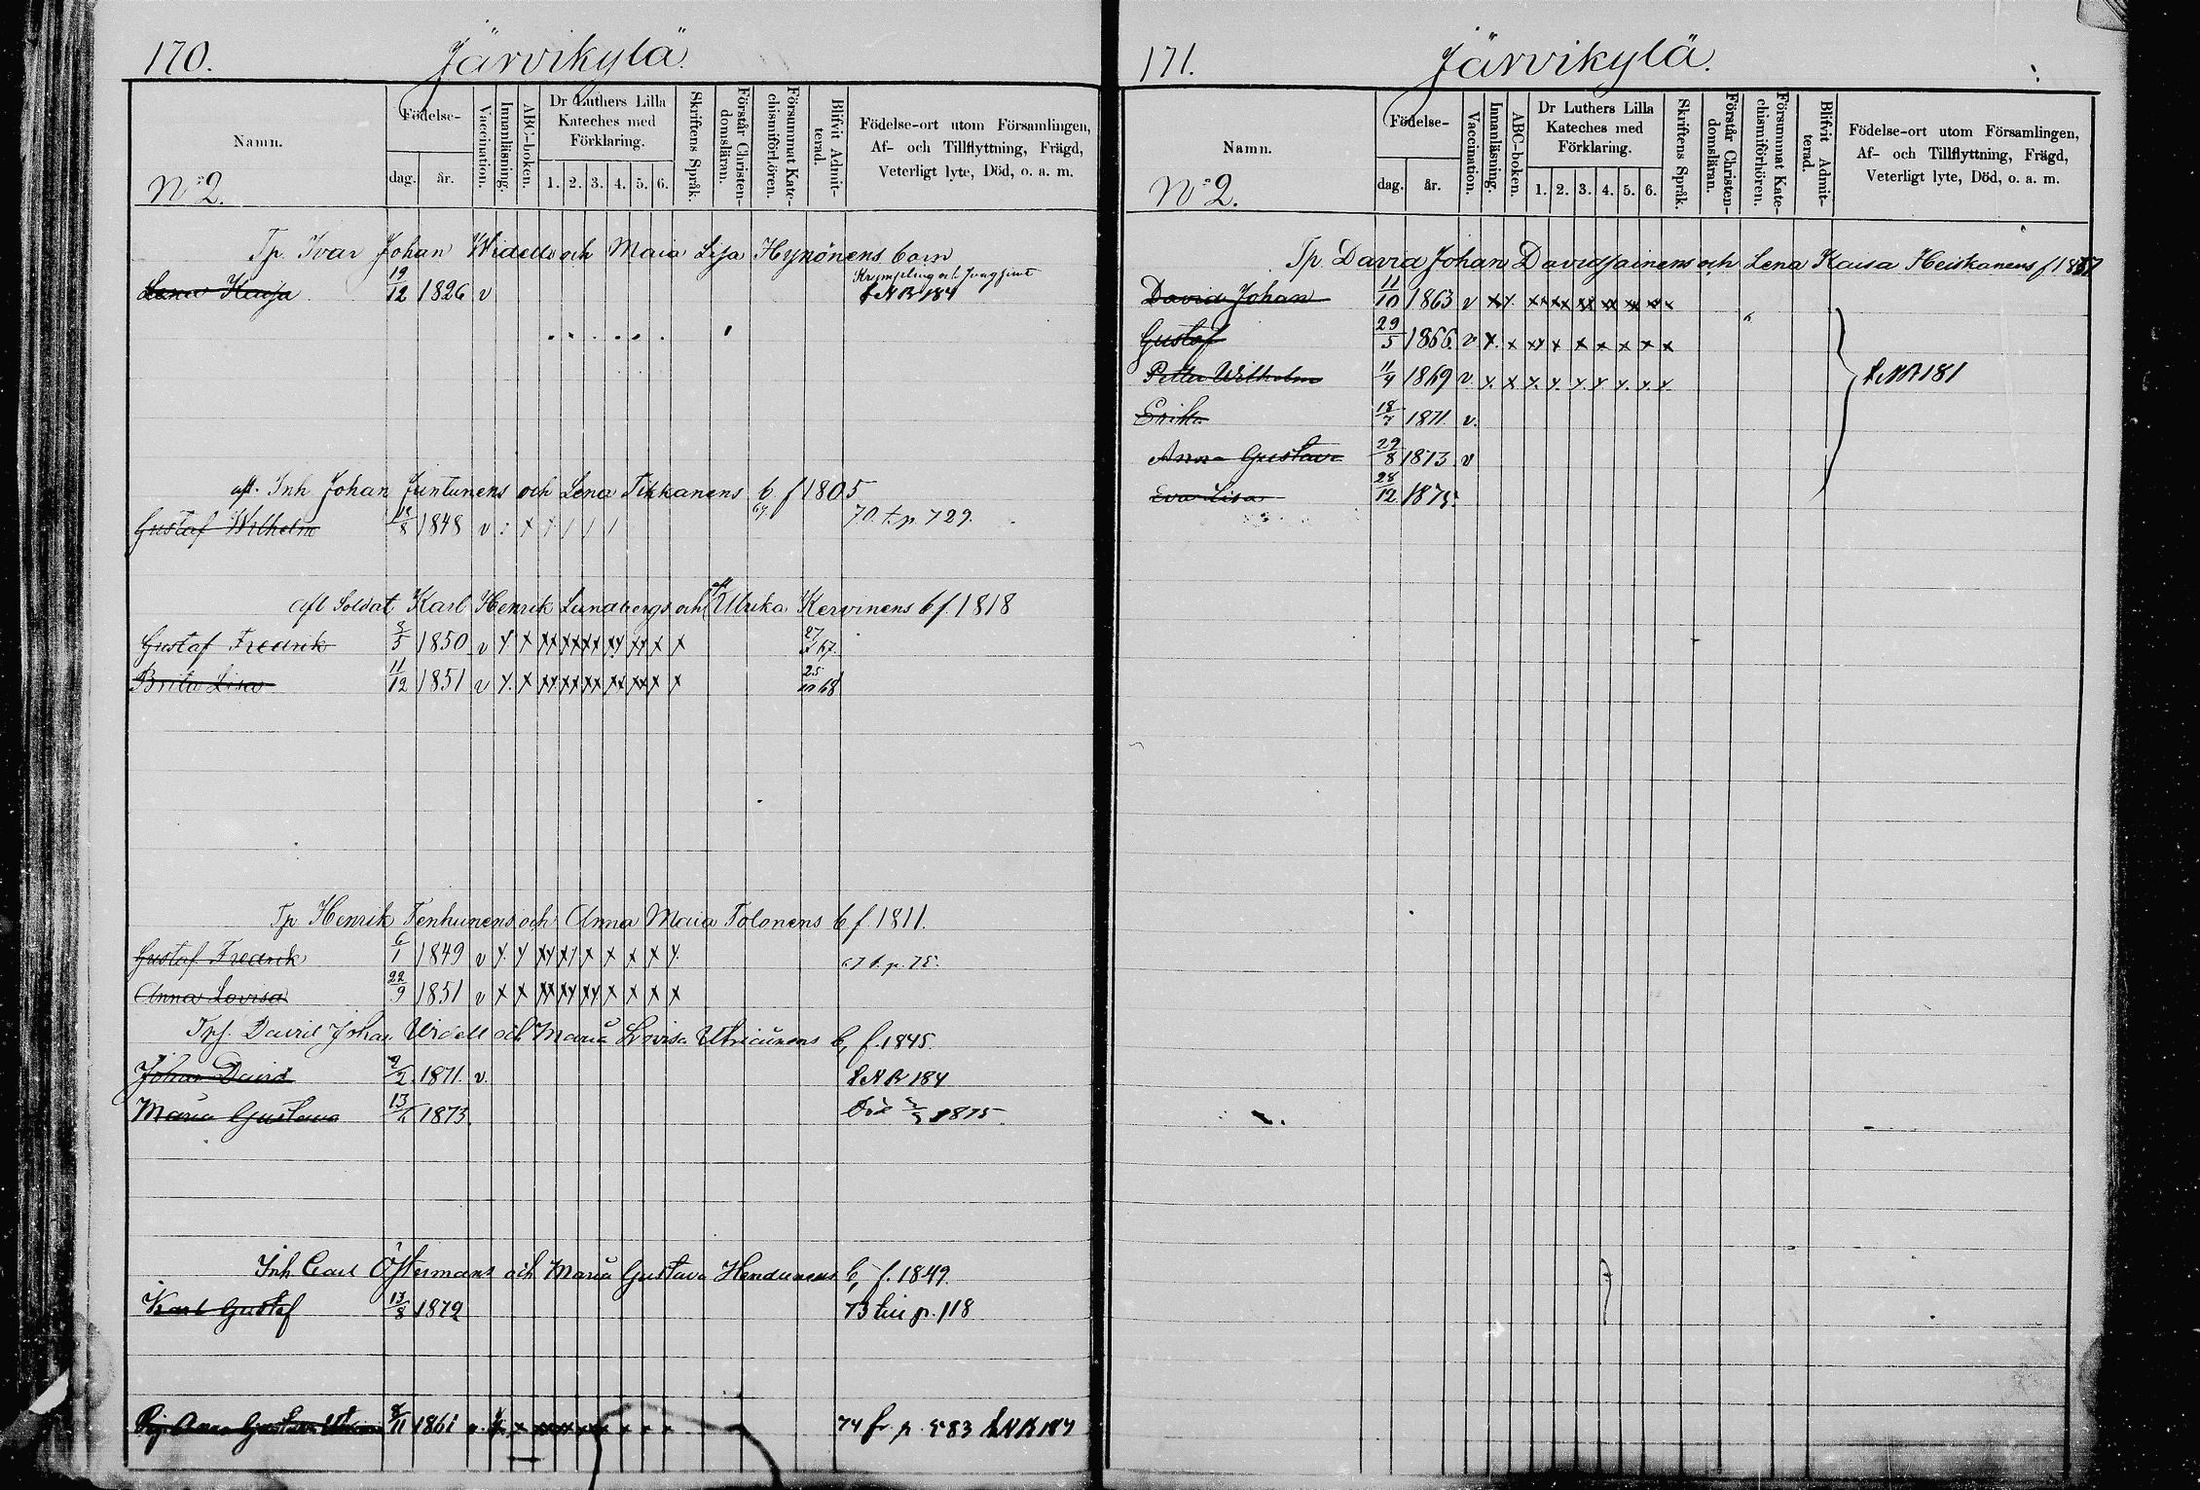 170. Järvikylä.
Namn.
Födelse-
dag. år.
Vaccination.
Innanläsning.
ABC-boken.
Dr Luthers Lilla Kateches med Förklaring.
1. 2. 3. 4. 5. 6.
Skriftens Språk.
Förstår Christen-domsläran.
Försummat Kate-chismiförhören.
Blifvit Admit-terad.
Födelse-ort utom Församlingen,
Af- och Tillflyttning, Frägd,
Veterligt lyte, Död, o. a. m.
No 2.
Tp. Ivar Johan Widells och Maia Lisa Hynönens barn
Lena Kaisa 19/12 1826 v LNB 184
afl. Inh Johan Juntunens och Lena Tikkanens b f 1805
Gustaf Wilhelm 1848 v 70. t. p. 729.
afl Soldat Karl Henrik Lundbergs och Ulrika Kervinens b f. 1818
Gustaf Fredrik 3/5 1850 v y x xx xx xx xy xy x x 27 67.
Brita Lisa 11/12 1851 v y. x xy xx xx xx xx x x 25/10 68
Tp Henrik Tenhunens och Anna Maia Tolonens b f. 1811.
Gustaf Fredrik 6/1 1849 v y. y xy xy x x x x y. t. p. 75.
Anna Lovisa 22/9 1851 v x x xx xy xy x x x x
David Johan Widell och Maria Lovisa b, f. 1845.
Johan David 2/2 1871. v. LNB 184
Maria Gustava 13 1873. Död 1875.
Inh Carl Östermans och Maria Gustava b, f. 1849.
Karl Gustaf 13/8 1872 73 till p. 118
Pig. Anna Gustava 8/11 1861 v. 74 fr p. 583 LNB 184
171. Järvikylä.
Namn.
Födelse-
dag. år.
Vaccination.
Innanläsning.
ABC-boken.
Dr Luthers Lilla Kateches med Förklaring.
1. 2. 3. 4. 5. 6.
Skriftens Språk.
Förstår Christen-domsläran.
Försummat Kate-chismiförhören.
Blifvit Admit-terad.
Födelse-ort utom Församlingen,
Af- och Tillflyttning, Frägd,
Veterligt lyte, Död, o. a. m.
No 2.
Tp. David Johan Davidsainens och Lena Kaisa Heiskanens f
David Johan 11/10 1863 v
Gustaf 29/5 1866. v y. x xy x x x x x x
Petter Wilhelm 11/4 1869 v y. x y. y. y. y y. y. y LNB 181
Erika 18/7 1871. v.
Anna Gustava 29/8 1873 v
Eva Lisa 28/12 1875.